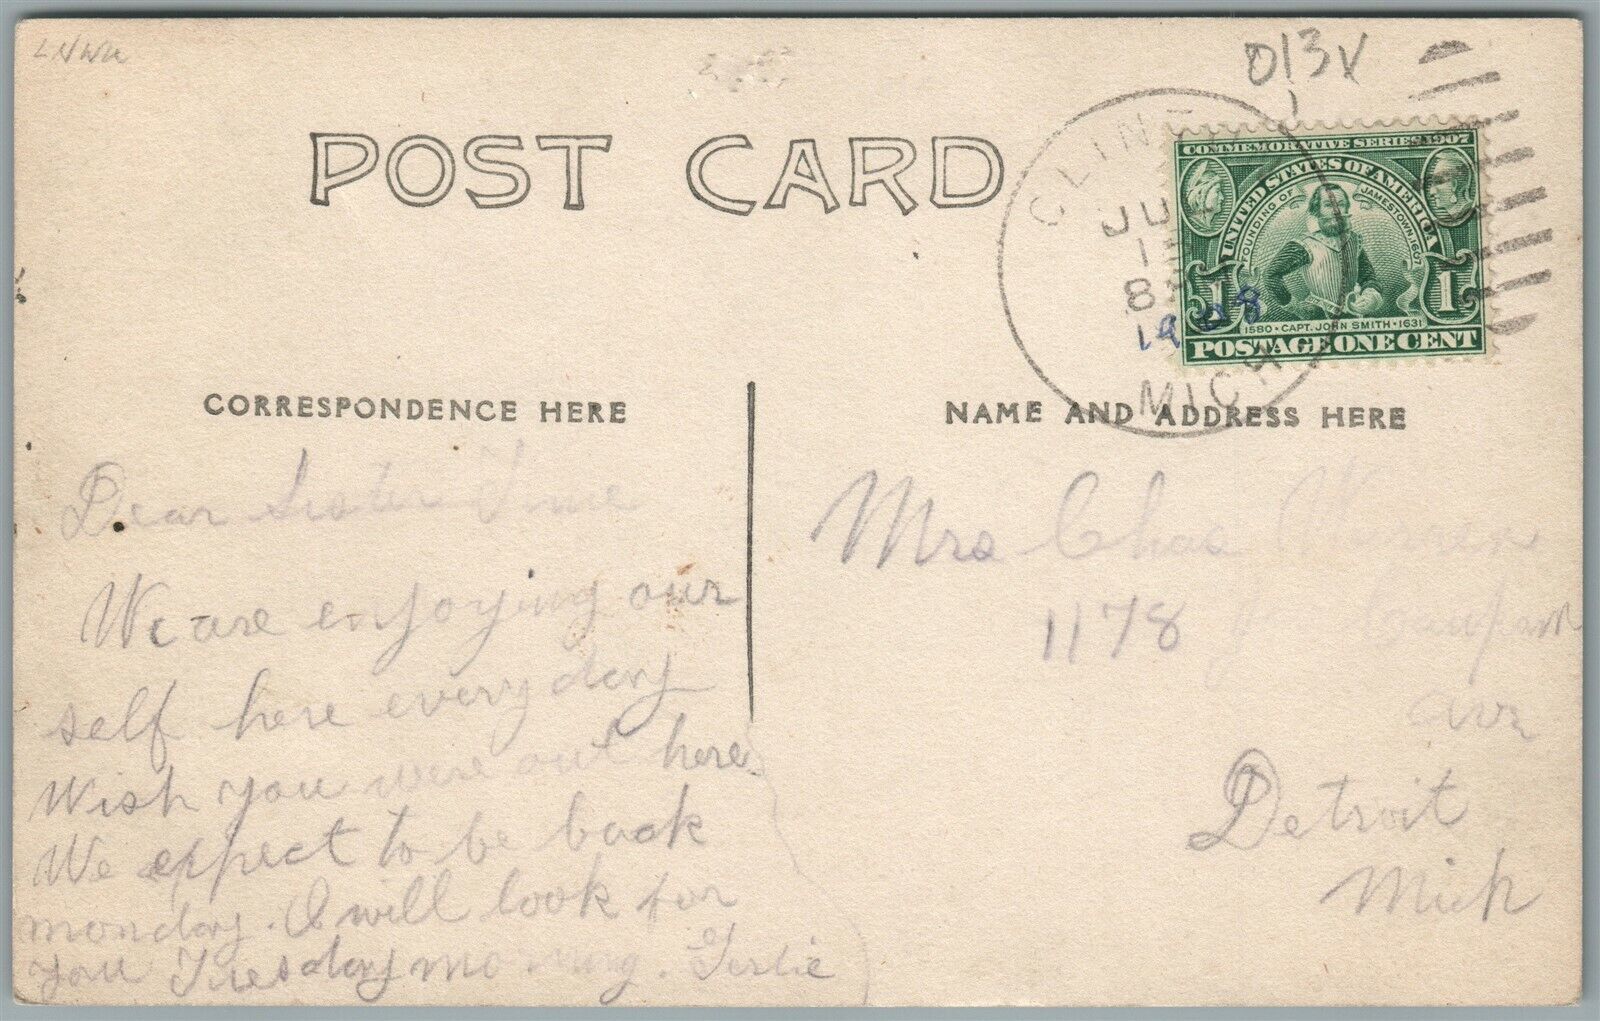 013V
POST CARD
CLINT
JU
1
8
1908
MICH
COMMEMORATIVE SERIES 1907
UNITED STATES OF AMERICA
FOUNDING OF JAMESTOWN, 1607
1 1
1580 • CAPT. JOHN SMITH • 1631
POSTAGE ONE CENT
CORRESPONDENCE HERE
Dear Sister
We are enjoying our
self here every day
Wish you were out here
We expect to be back
monday. I will look for
you Tuesday morning. Gertie
NAME AND ADDRESS HERE
Mrs Chas Warren
1178
ave
Detroit
Mich